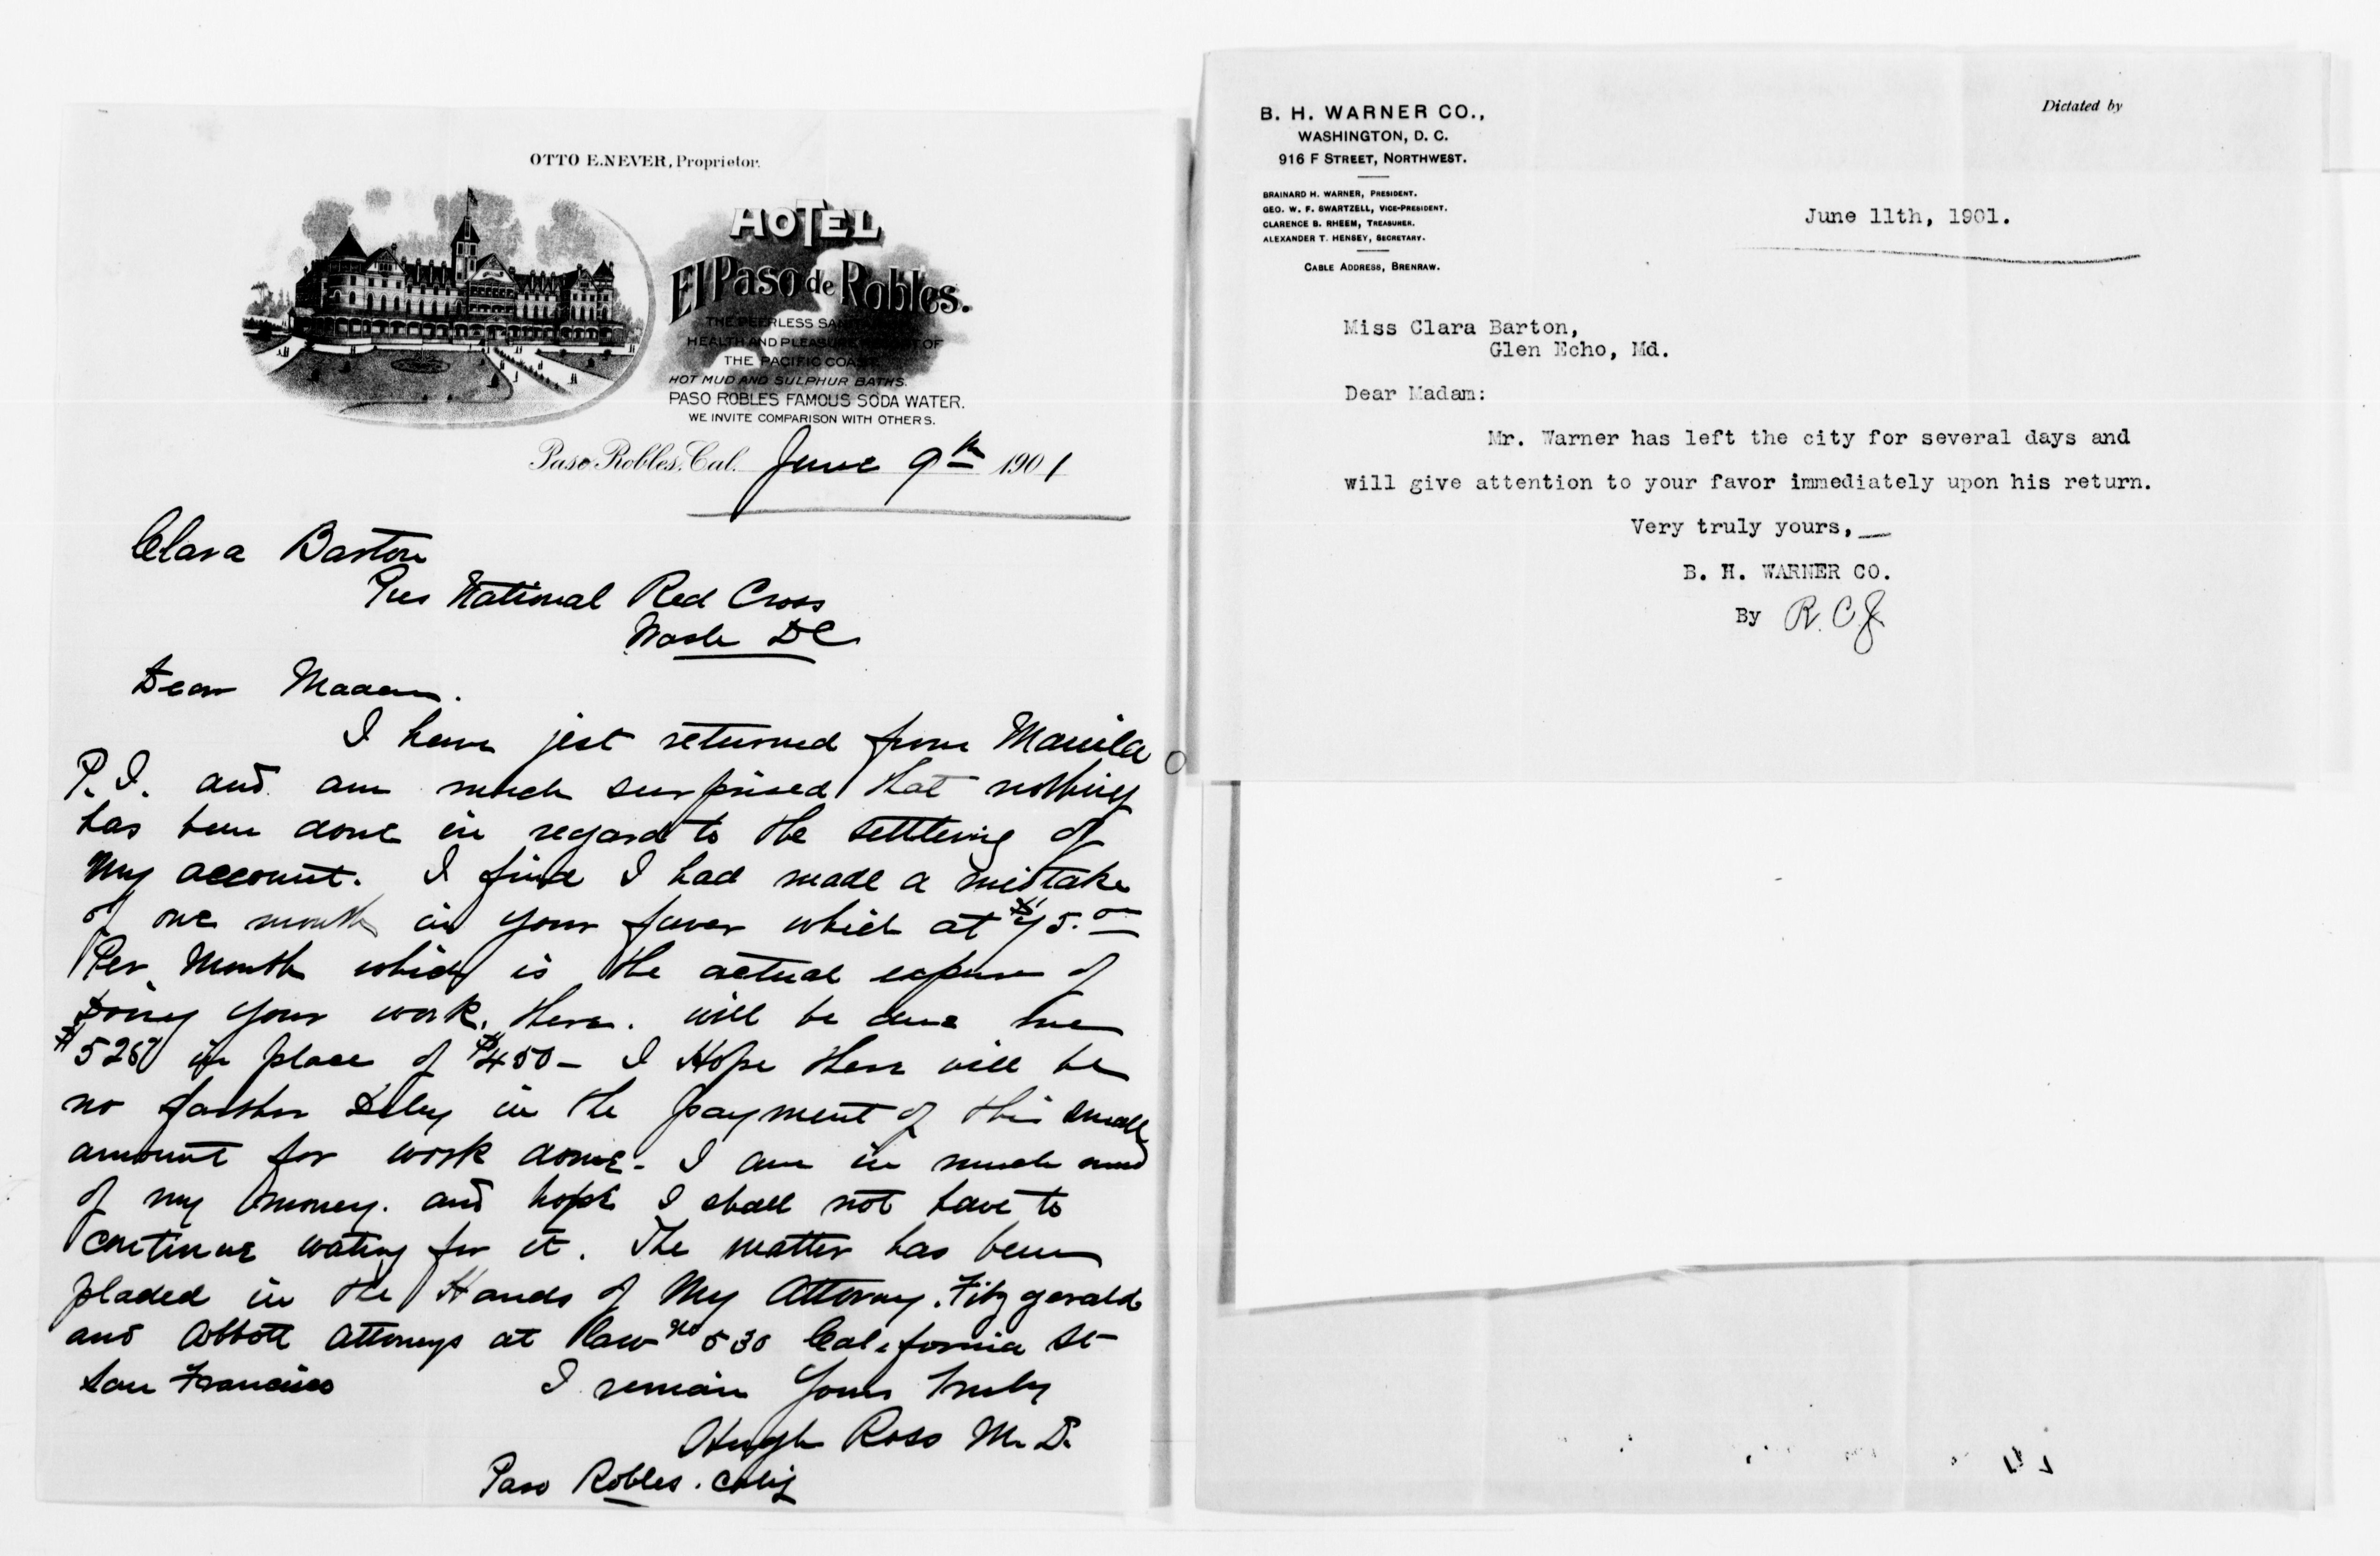 OTTO E. NEVER, Proprietor.
HOTEL
El Paso de Robles.
THE PEERLESS
HEALTH AND PLEASURE OF
THE PACIFIC COAST
HOT MUD AND SULPHUR BATHS.
PASO ROBLES FAMOUS SODA WATER.
WE INVITE COMPARISON WITH OTHERS.
Paso Robles, Cal. June 9th 1901
Clara Barton
Pres National Red Cross
Wash DC
Dear Madam.
I have jest returned from Manila
P.I. and am much surprised that nothing
has been done in regard to the settleing of
My account. I find I had made a mistake
of one month in your faver which at $75.00
Per Month which is the actual expense of
Doing your work. there. will be due me
$525 in place of $450 - I Hope there will be
no farther Delay in the payment of this small
amount for work done - I am in much need
of my money. and hope I shall not have to
continue wating for it. The matter has been
pladed in the Hands of My Attorney. Fitzgerald
and Abbott Attorneys at law No 530 California St
San Francisco I remain Yours Truly
Hugh Ross M.D.
Paso Robles. Calif
B. H. WARNER CO.,
WASHINGTON, D. C.
916 F STREET, NORTHWEST.
BRAINARD H. WARNER, PRESIDENT.
GEO. W. F. SWARTZELL, VICE-PRESIDENT.
CLARENCE B. RHEEM, TREASURER.
ALEXANDER T. HENSEY, SECRETARY.
CABLE ADDRESS, BRENRAW.
Dictated by
June 11th, 1901.
Miss Clara Barton,
Glen Echo, Md.
Dear Madam:
Mr. Warner has left the city for several days and
will give attention to your favor immediately upon his return.
Very truly yours,
B. H. WARNER CO.
By R. C. J.